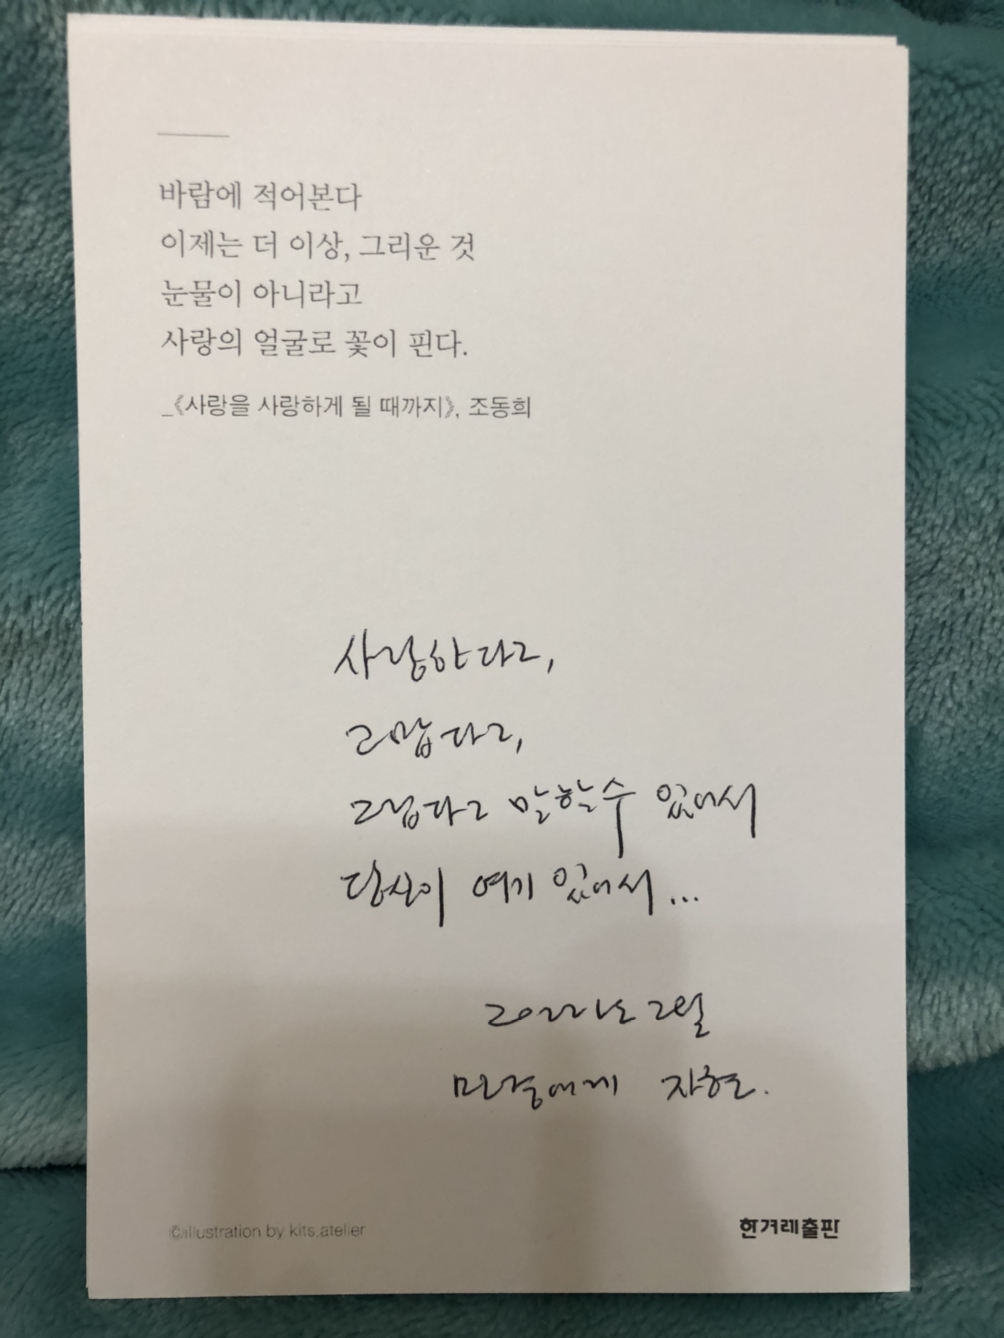 바람에 적어본다
이제는 더 이상, 그리운 것
눈물이 아니라고
사랑의 얼굴로 꽃이 핀다.
_《사랑을 사랑하게 될 때까지》, 조동희
사랑한다고,
고맙다고,
그립다고 말할 수 있어서
당신이 여기 있어서...
2022년 2월
민경에게 자현.
©illustration by kits.atelier
한겨레출판